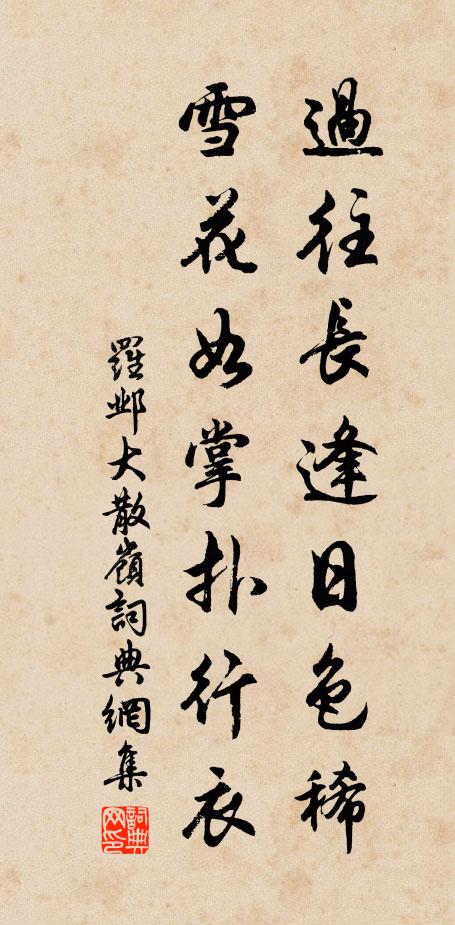 過往長逢日色稀
雪花如掌撲行衣
羅鄴大散嶺詞典網集
詞典网印